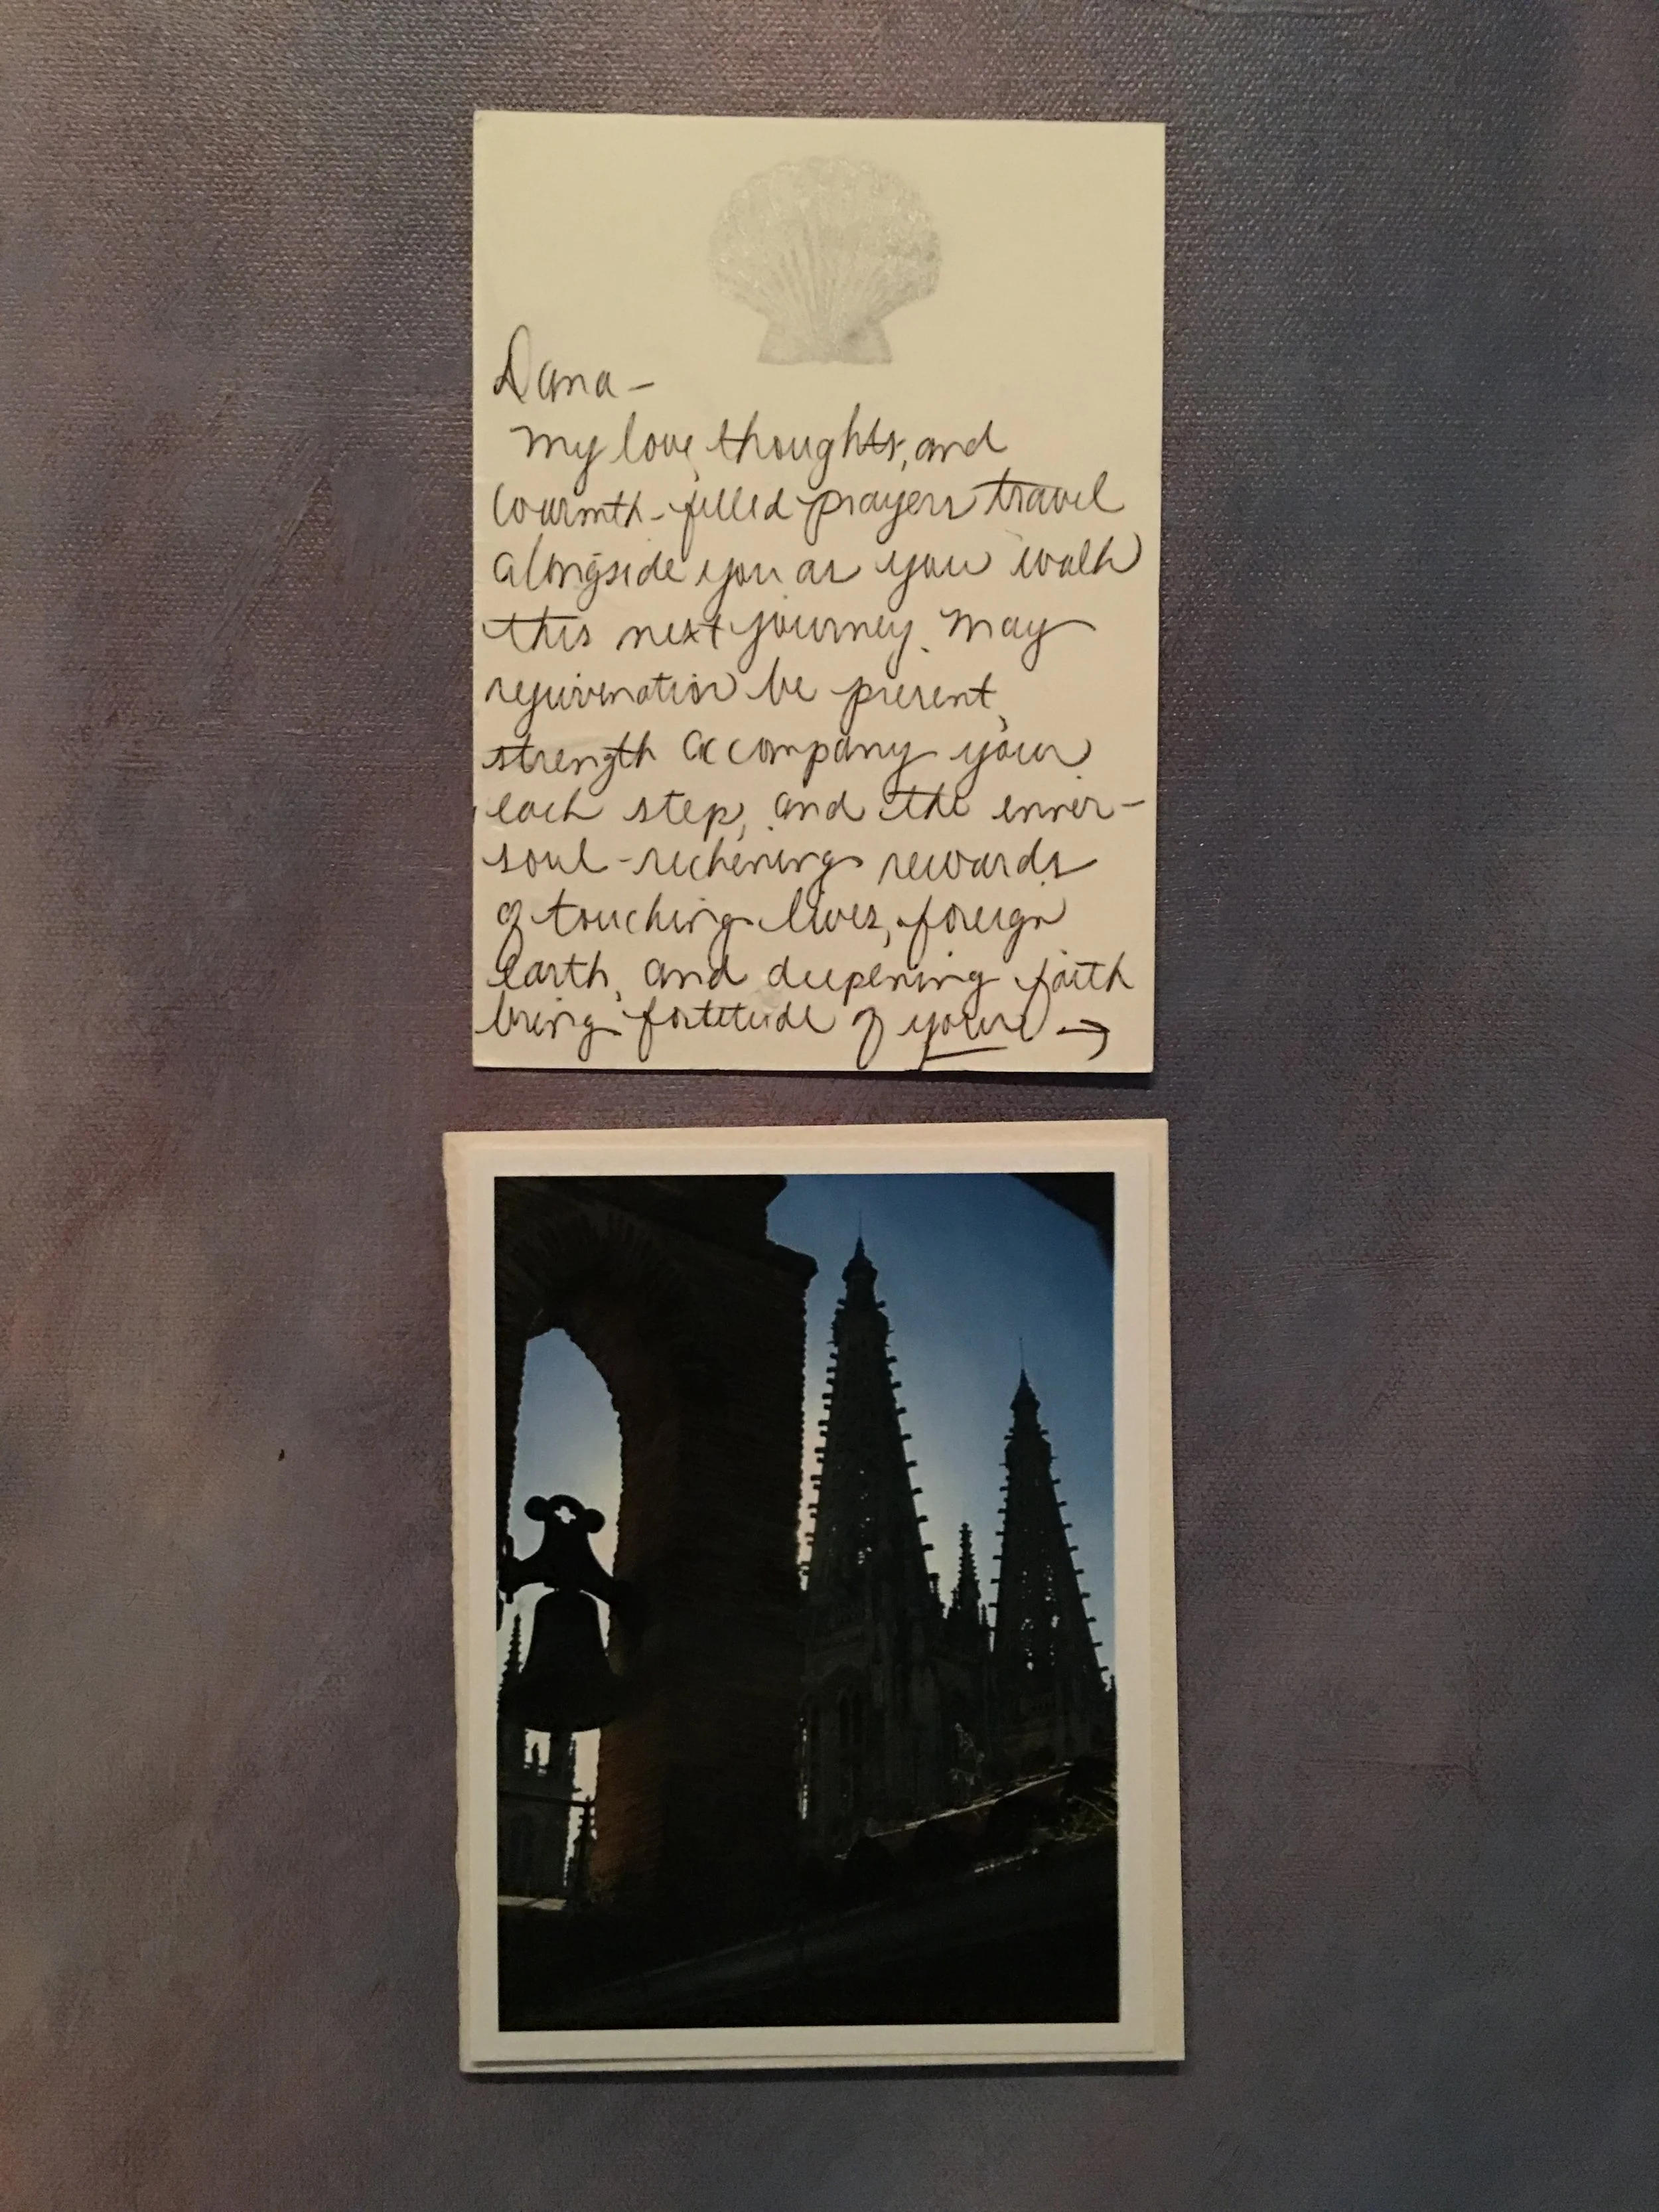 Dana –
My love, thoughts, and
warmth-filled prayers travel
alongside you as you walk
this next journey. May
rejuvenation be present,
strength accompany your
each step, and the inner-
soul-reckening rewards
of touching lives, foreign
earth, and deepening faith
bring fortitude of your →